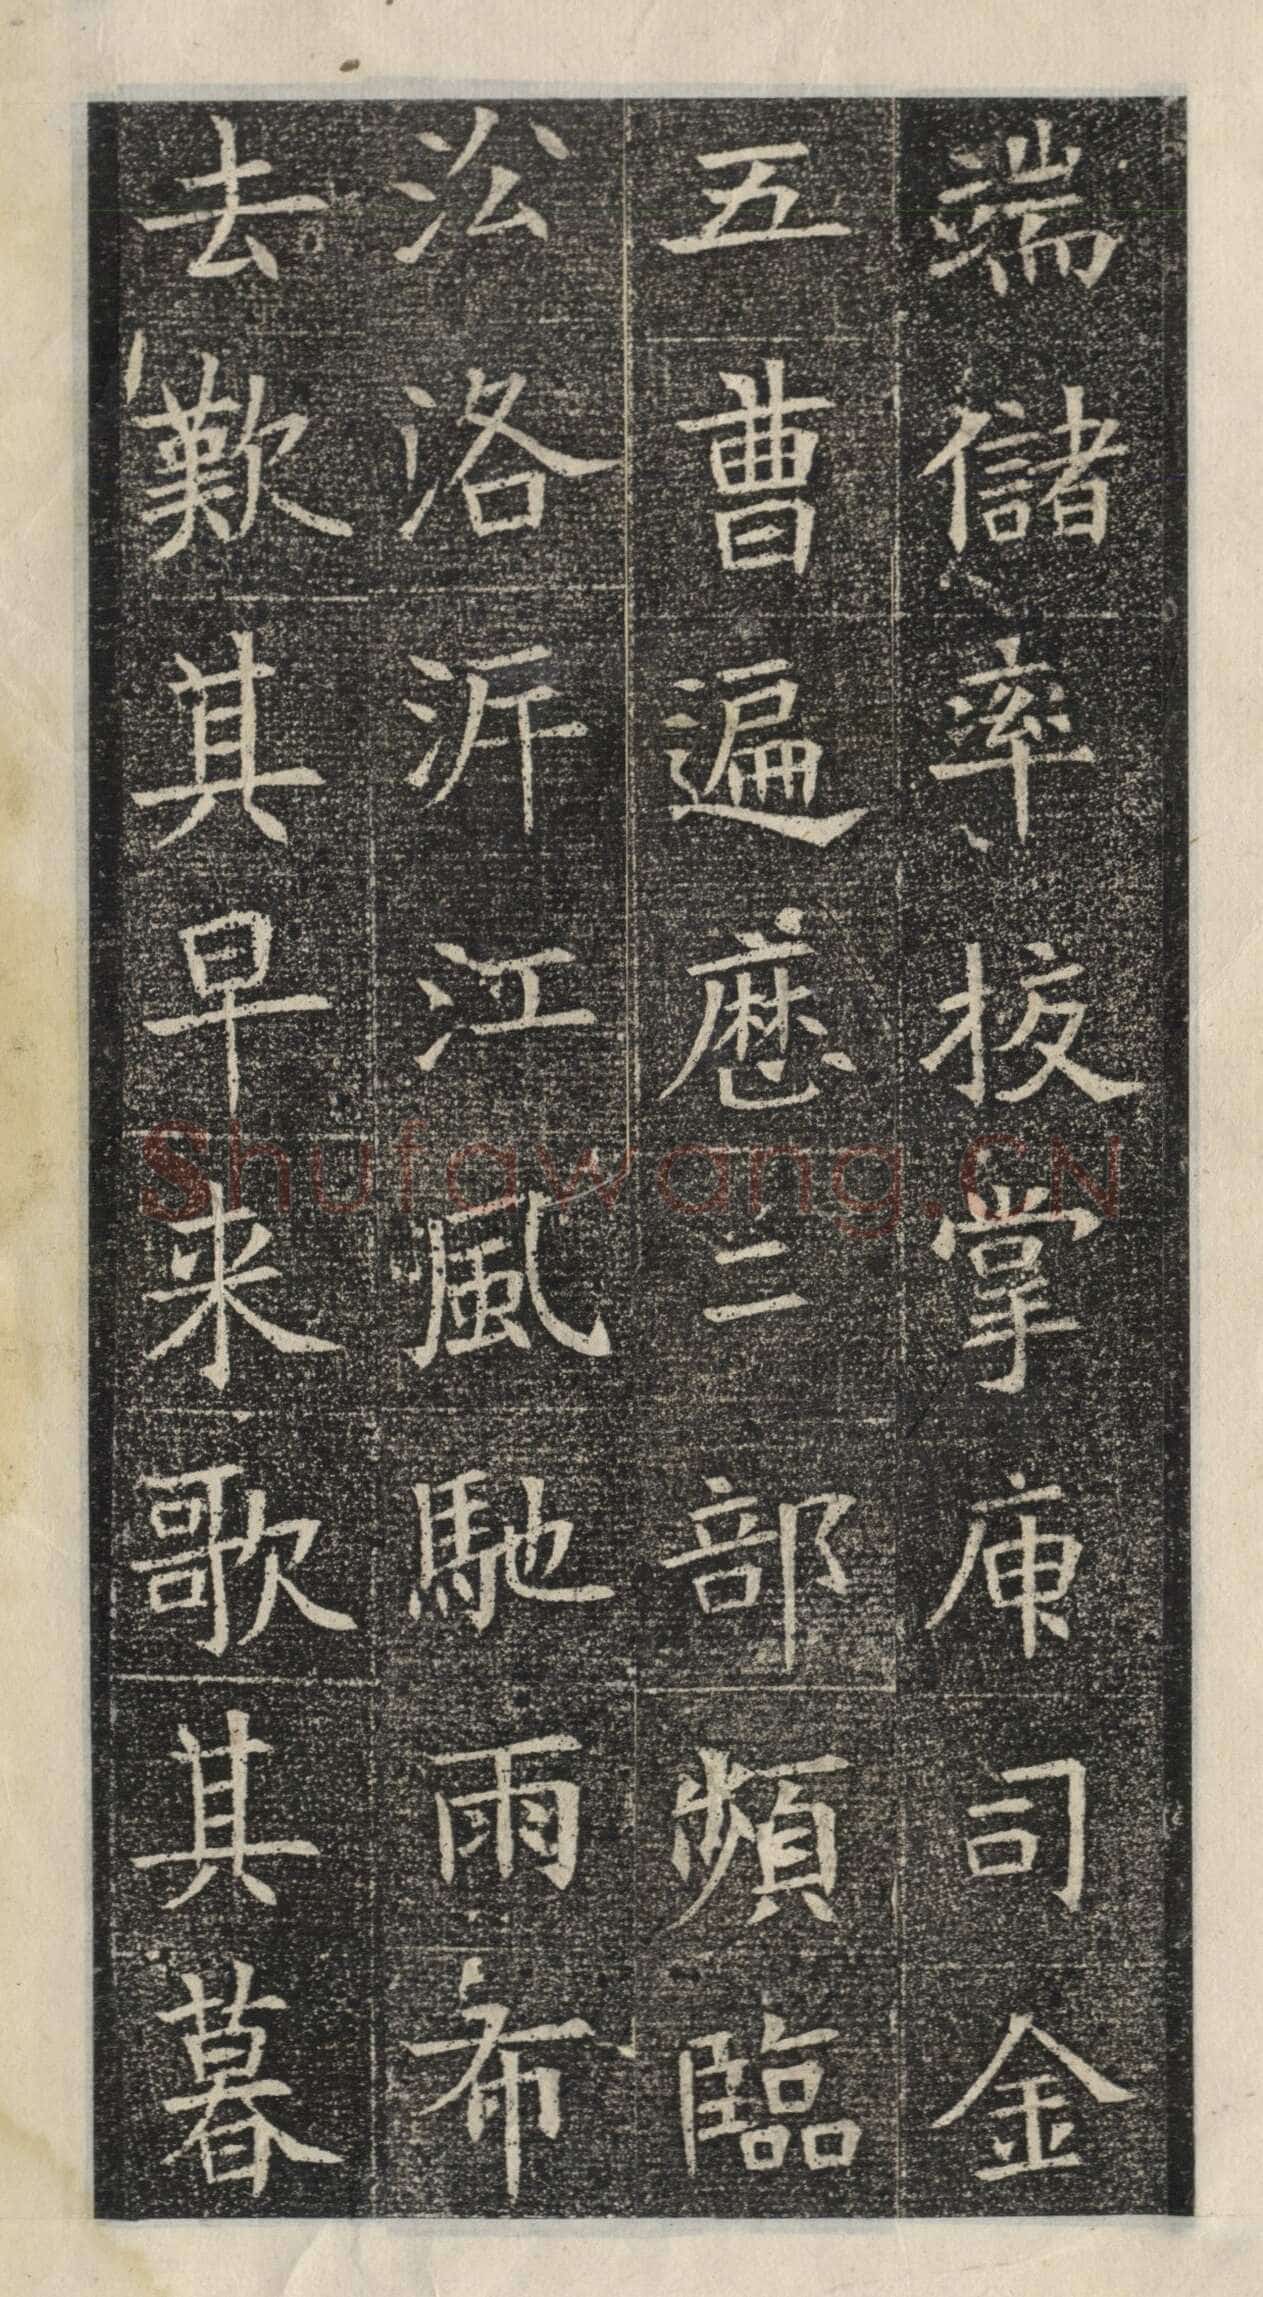 端儲率按掌庾司金
五曹遍歷二部頻臨
沿洛泝江風馳雨布
去歎其早来歌其暮
Shufawang.CN